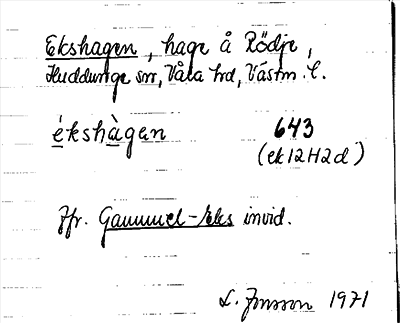 Ekshagen, hage å Rödje,
Huddunge sn, Våla hd, Västm. l.
ékshàgen 643
(ek12H2d)
Jfr. Gammel-Eks invid.
L. Jonsson 1971